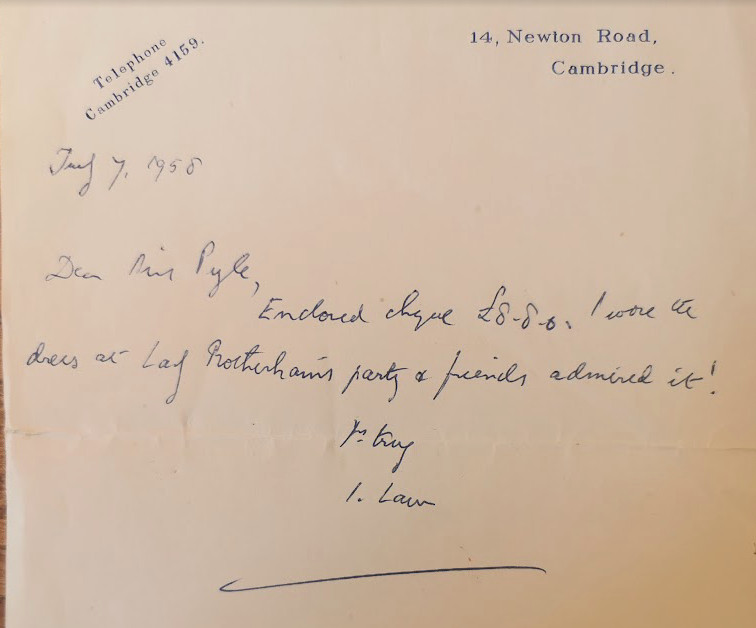 Telephone
Cambridge 4159.
14, Newton Road,
Cambridge.
July 7, 1958
Dear Miss Pyle,
Enclosed cheque £8-8-0. I wore the
dress at Lady Rotherham's party & friends admired it!
Yrs truly
I. Law